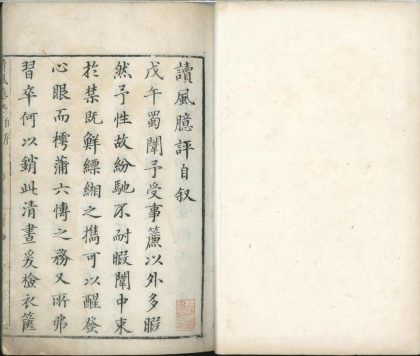 讀風臆評自叙
戊午蜀闈予受事簾以外多暇
然予性故紛馳不耐暇闈中束
於禁既鮮縹緗之攜可以醒發
心眼而樗蒲六博之務又所弗
習卒何以銷此清晝爰檢衣篋